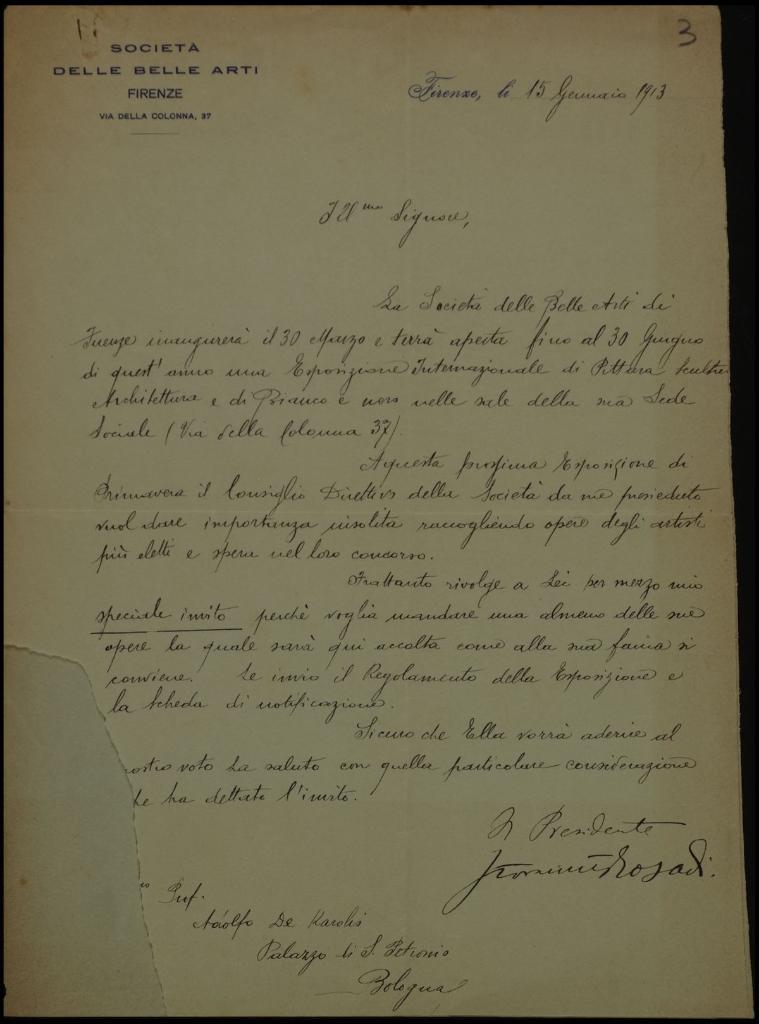 3
SOCIETÀ
DELLE BELLE ARTI
FIRENZE
VIA DELLA COLONNA, 37
Firenze, li 15 Gennaio 1913
Ill.mo Signore,
La Società delle Belle Arti di
Firenze inaugurerà il 30 Marzo e terrà aperta fino al 30 Giugno
di quest'anno una Esposizione Internazionale di Pittura Scultura
Architettura e di Bianco e nero nelle sale della sua Sede
Sociale (Via della Colonna 37).
A questa prossima Esposizione di
Primavera il Consiglio Direttivo della Società da me presieduto
vuol dare importanza insolita raccogliendo opere degli artisti
più eletti e spera nel loro concorso.
Frattanto rivolge a Lei per mezzo mio
speciale invito perchè voglia mandare una almeno delle sue
opere la quale sarà qui accolta come alla sua fama si
conviene. Le invio il Regolamento della Esposizione e
la Scheda di notificazione.
Sicuro che Ella vorrà aderire al
ostro voto La saluto con quella particolare considerazione
he ha dettato l'invito.
Il Presidente
Rosadi.
Prof.
Adolfo De Karolis
Palazzo di S. Petronio
Bologna